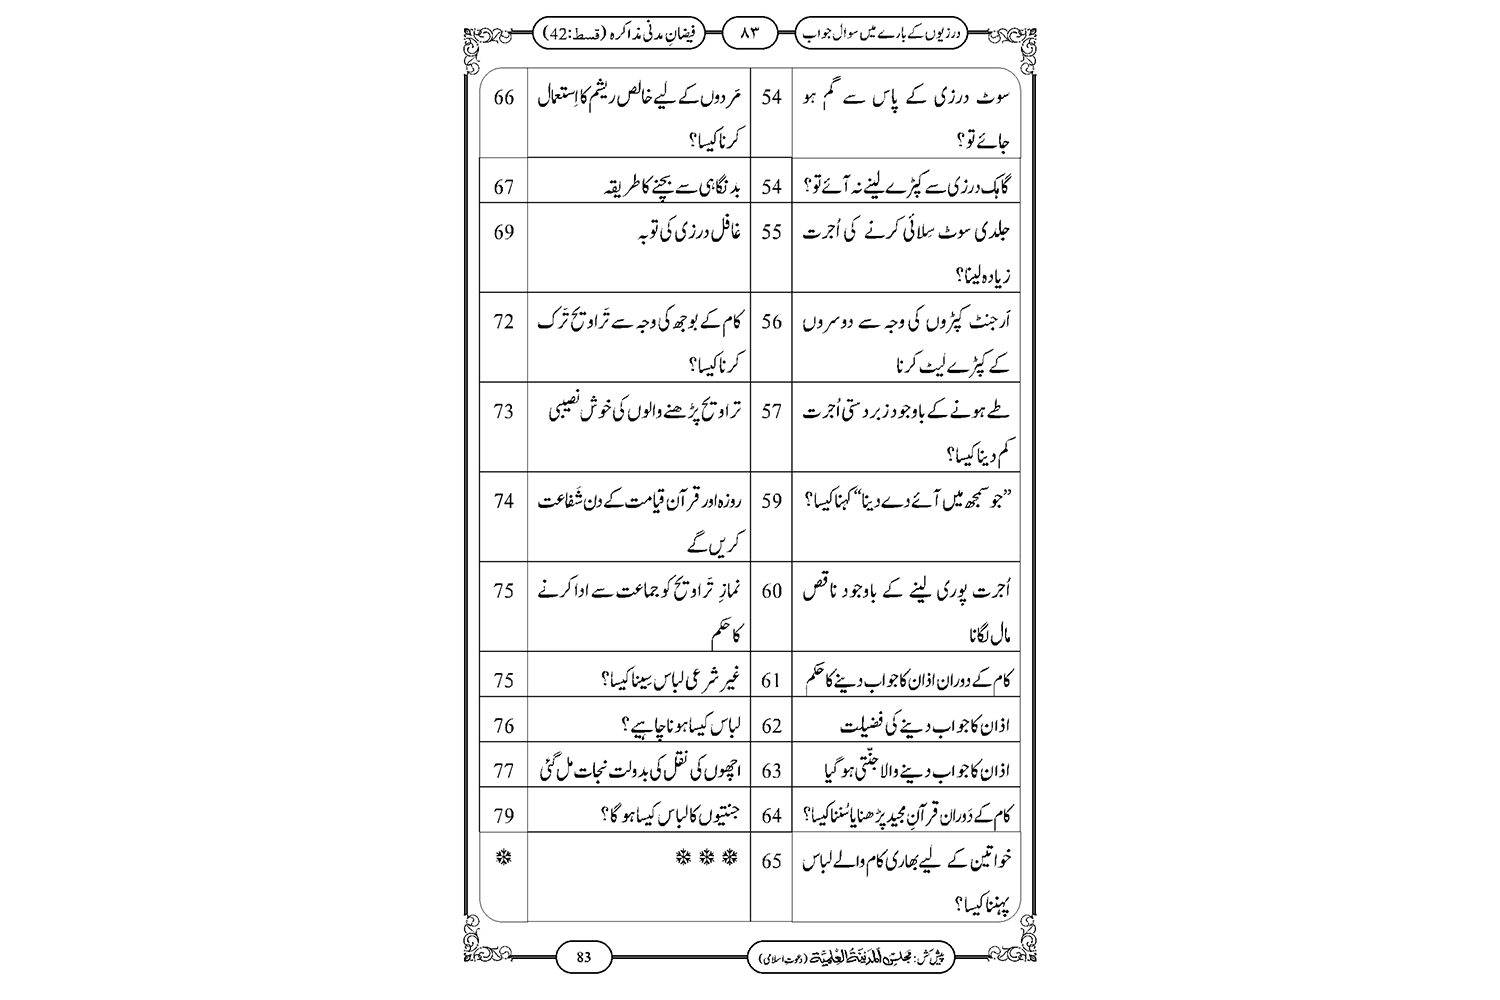 درزیوں کے بارے میں سوال جواب ۸۳ فیضانِ مدنی مذاکرہ (قسط:42)
سوٹ درزی کے پاس سے گم ہو
جائے تو؟
54
گاہک درزی سے کپڑے لینے نہ آئے تو؟ 54
جلدی سوٹ سِلائی کرنے کی اُجرت
زیادہ لینا؟
55
اَرجنٹ کپڑوں کی وجہ سے دوسروں
کے کپڑے لیٹ کرنا
56
طے ہونے کے باوجود زبردستی اُجرت
کم دینا کیسا؟
57
”جو سمجھ میں آئے دے دینا“ کہنا کیسا؟ 59
اُجرت پوری لینے کے باوجود ناقص
مال لگانا
60
کام کے دوران اذان کا جواب دینے کا حکم 61
اذان کا جواب دینے کی فضیلت 62
اذان کا جواب دینے والا جنّتی ہو گیا 63
کام کے دَوران قرآنِ مجید پڑھنا یا سُننا کیسا؟ 64
خواتین کے لیے بھاری کام والے لباس
پہننا کیسا؟
65
مَردوں کے لیے خالص ریشم کا اِستعمال
کرنا کیسا؟
66
بدنگاہی سے بچنے کا طریقہ 67
غافل درزی کی توبہ 69
کام کے بوجھ کی وجہ سے تَراویح تَرک
کرنا کیسا؟
72
تراویح پڑھنے والوں کی خوش نصیبی 73
روزہ اور قرآن قیامت کے دن شَفاعت
کریں گے
74
نمازِ تَراویح کو جماعت سے ادا کرنے
کا حکم
75
غیر شرعی لباس سِینا کیسا؟ 75
لباس کیسا ہونا چاہیے؟ 76
اچھوں کی نقل کی بدولت نجات مل گئی 77
جنتیوں کا لباس کیسا ہو گا؟ 79
پیش کش: مجلس المدینۃ العلمیۃ (دعوتِ اسلامی) 83